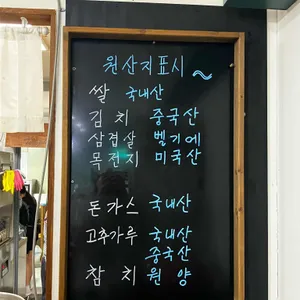 원산지표시~
쌀 국내산
김치 중국산
삼겹살 벨기에
목전지 미국산
돈가스 국내산
고추가루 국내산
중국산
참치 원양